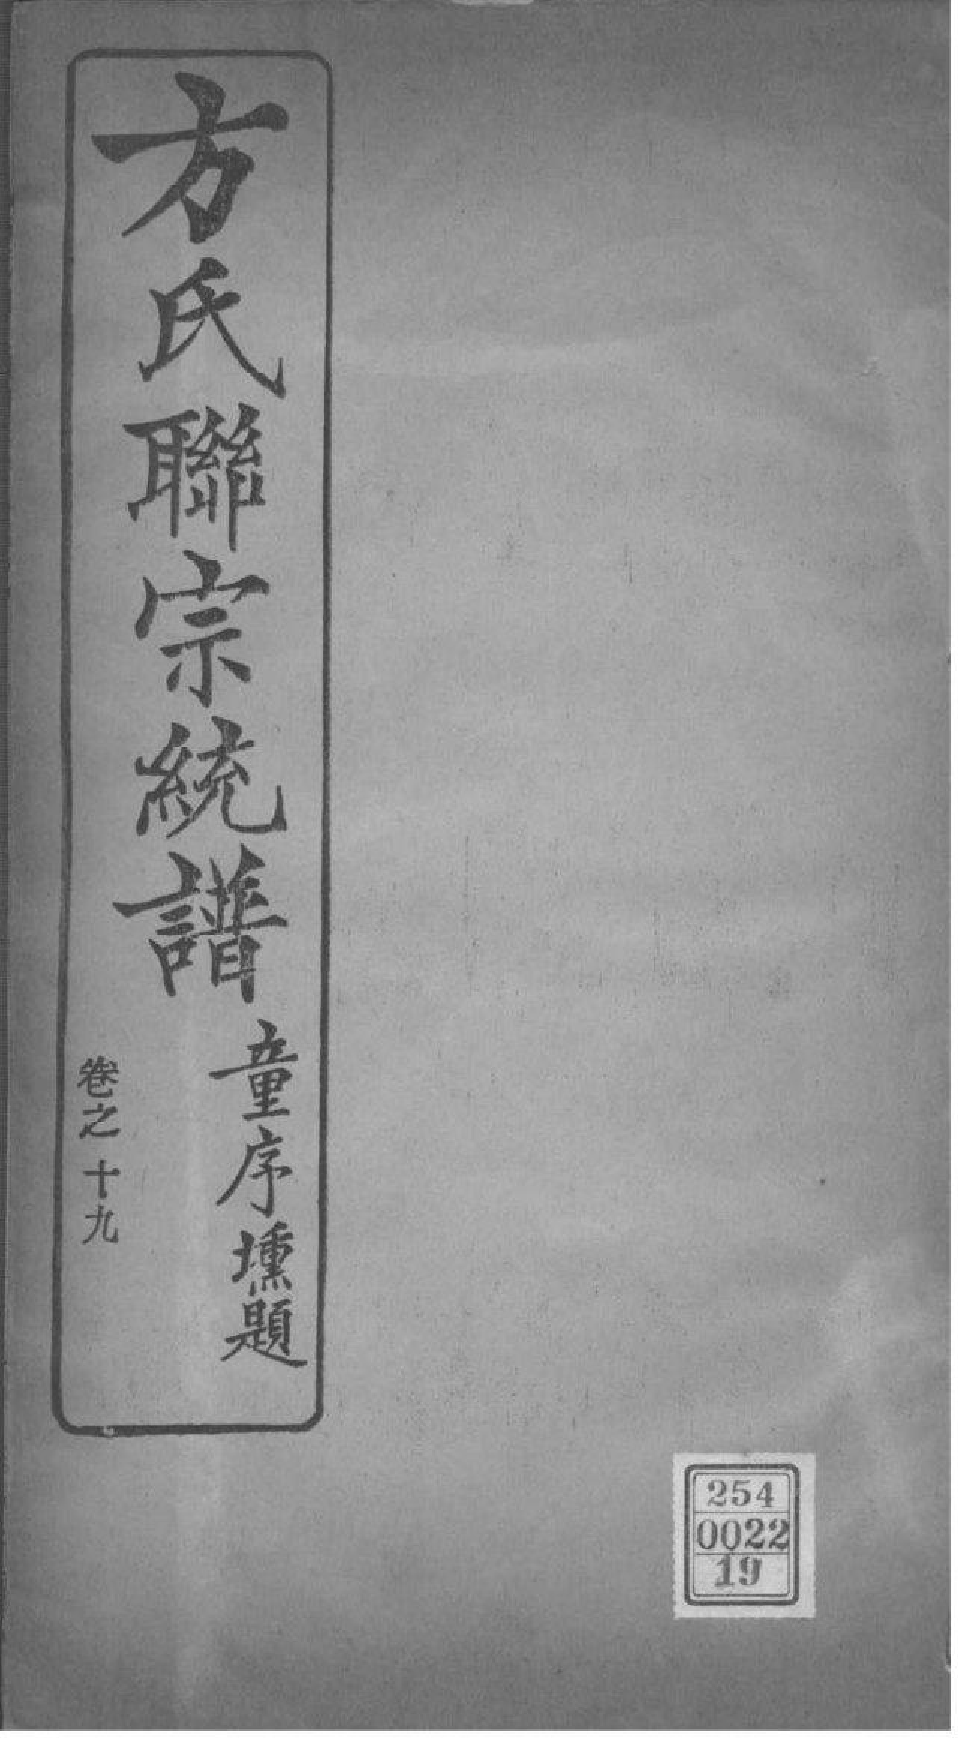 方氏聯宗統譜
童序壎題
卷之十九
254
0022
19